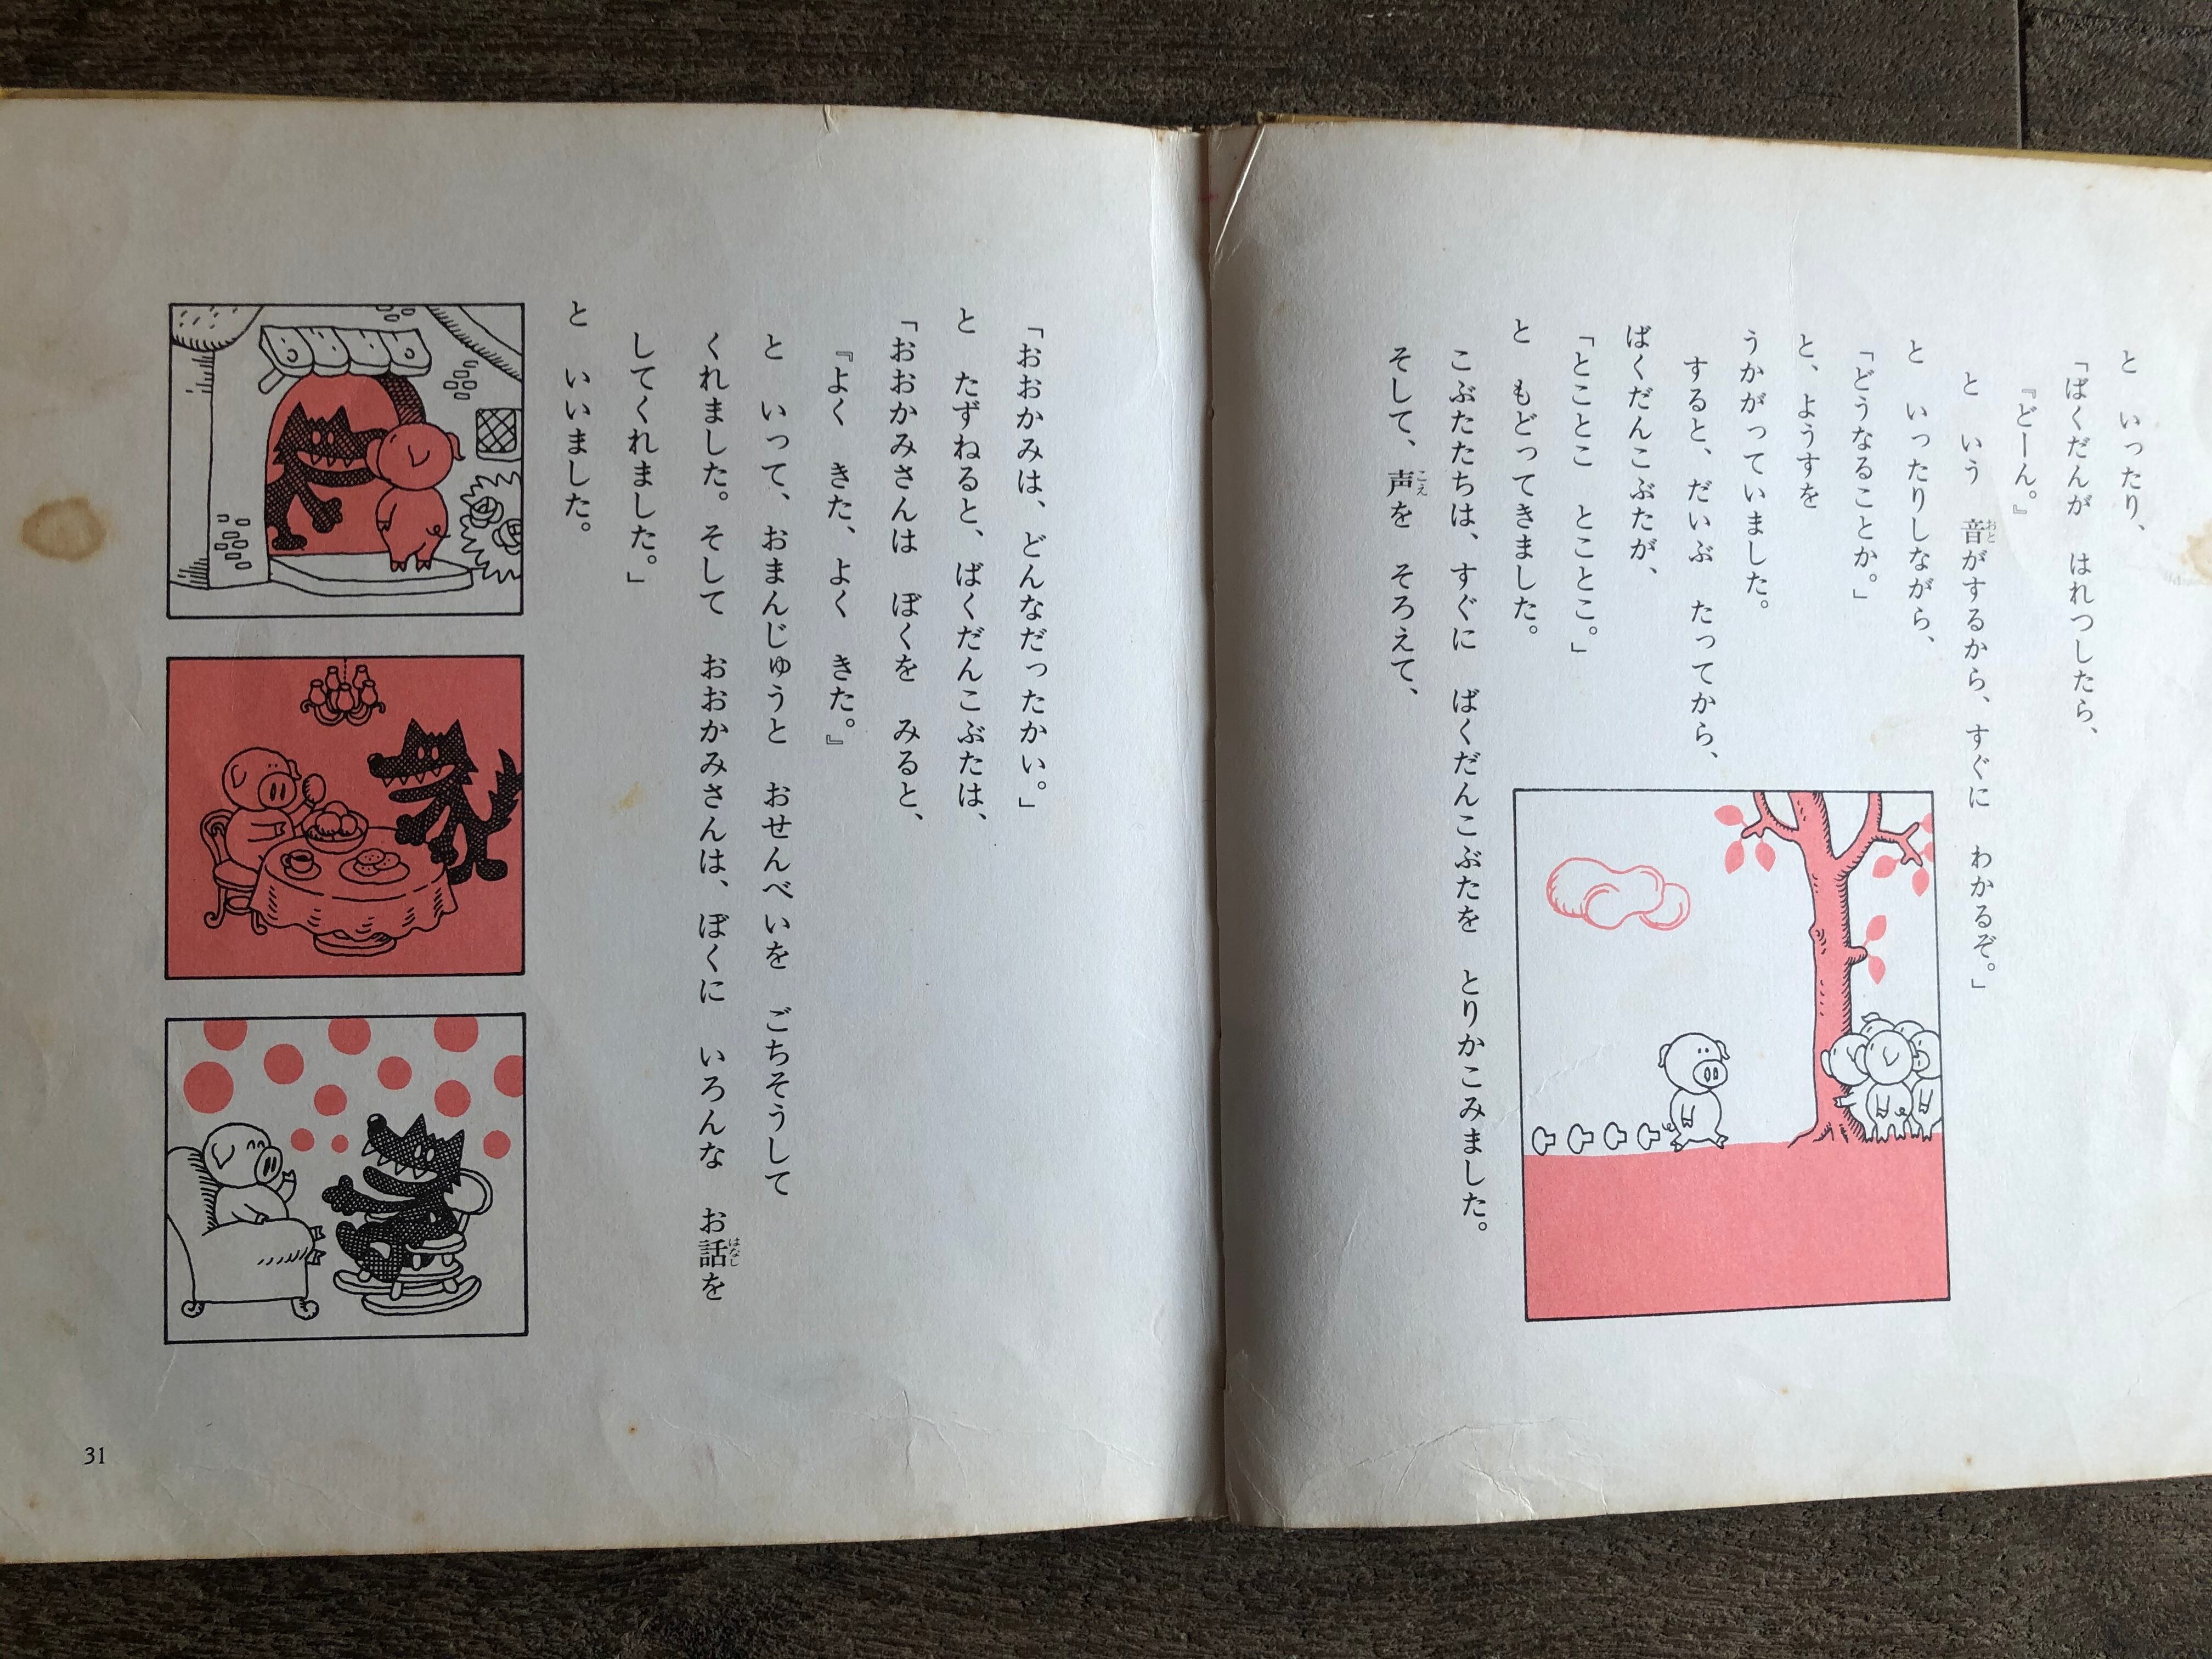 と　いったり、
「ばくだんが　はれつしたら、
『どーん。』
と　いう　音がするから、すぐに　わかるぞ。」
と　いったりしながら、
「どうなることか。」
と、ようすを
うかがっていました。
すると、だいぶ　たってから、
ばくだんこぶたが、
「とことこ　とことこ。」
と　もどってきました。
こぶたたちは、すぐに　ばくだんこぶたを　とりかこみました。
そして、声を　そろえて、
「おおかみは、どんなだったかい。」
と　たずねると、ばくだんこぶたは、
「おおかみさんは　ぼくを　みると、
『よく　きた、よく　きた。』
と　いって、おまんじゅうと　おせんべいを　ごちそうして
くれました。そして　おおかみさんは、ぼくに　いろんな　お話を
してくれました。」
と　いいました。
31